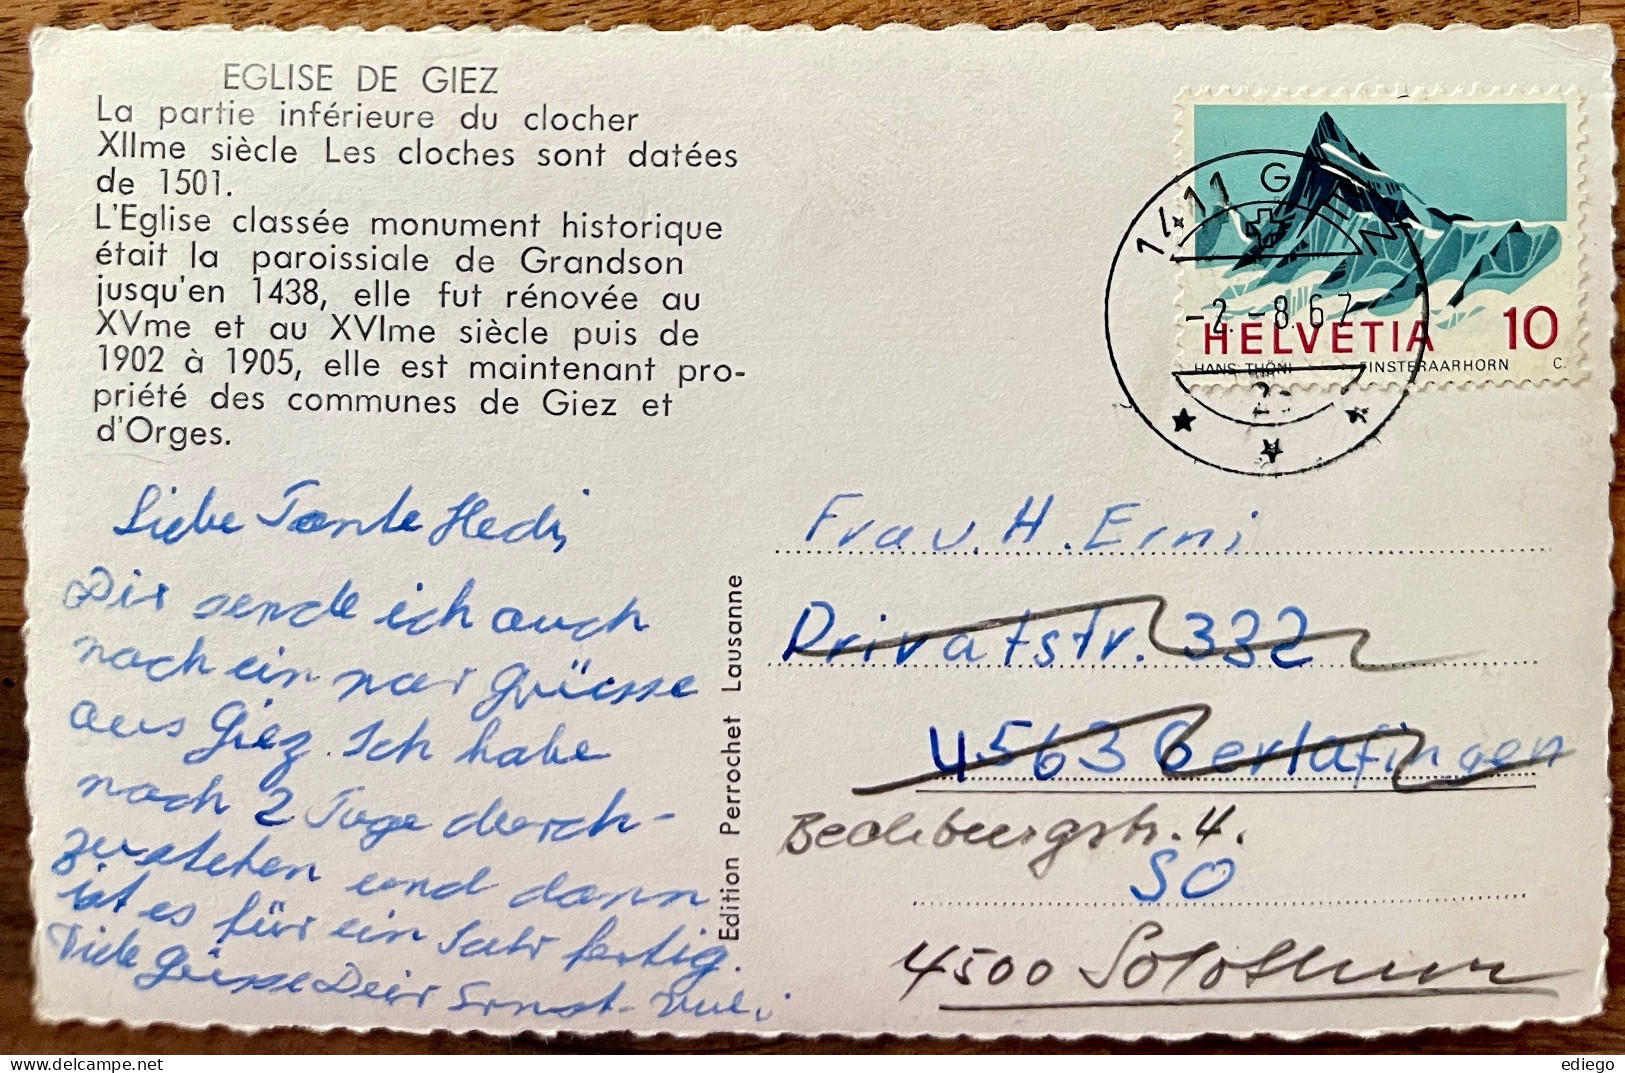 EGLISE DE GIEZ
La partie inférieure du clocher
XIIme siècle Les cloches sont datées
de 1501.
L'Eglise classée monument historique
était la paroissiale de Grandson
jusqu'en 1438, elle fut rénovée au
XVme et au XVIme siècle puis de
1902 à 1905, elle est maintenant pro-
priété des communes de Giez et
d'Orges.
HELVETIA 10
HANS THÖNI FINSTERAARHORN C.
1411 G
-2.-8.67
Liebe Tante Hedi,
Dir sende ich auch
noch ein par Grüsse
aus Giez. Ich habe
noch 2 Tage durch-
zustehen und dann
ist es für ein Jahr fertig.
Viele Grüsse Dein Ernst
Edition Perrochet Lausanne
Frau. H. Erni
Privatstr. 332
4563 Gerlafingen
Bechburgstr. 4.
SO
4500 Solothurn
ediego